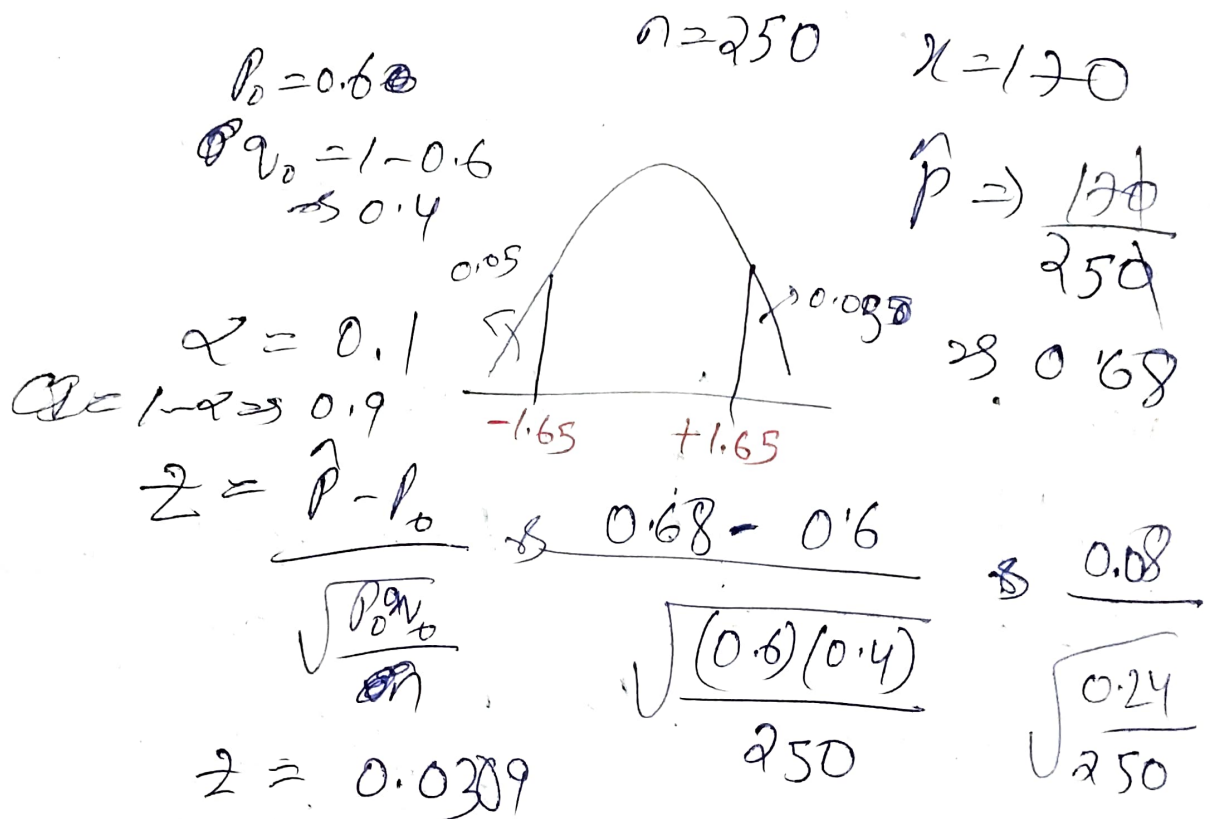 n=250 x=170
P₀=0.60
q₀=1-0.6
⇒ 0.4
p̂ ⇒ 170/250
⇒ 0.68
0.05
α = 0.1
1-α ⇒ 0.9
-1.65 +1.65
z = (p̂ - P₀)/√(P₀q₀/n) ⇒ (0.68 - 0.6)/√((0.6)(0.4)/250) ⇒ 0.08/√(0.24/250)
z = 0.0309